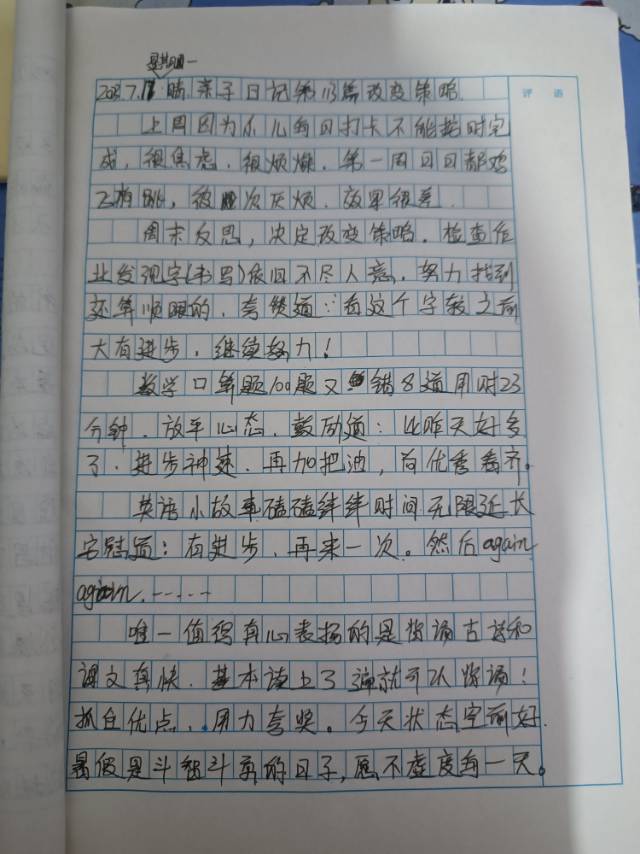 星期一
2023.7.17 晴 亲子日记第113篇 改变策略
上周因为小儿每日打卡不能按时完
成，很焦虑，很烦燥，第一周日日都鸡
飞狗跳，彼此次次厌烦，效果很差。
周末反思，决定改变策略。检查作
业发现字(书写)依旧不尽人意，努力找到
还算顺眼的，夸赞道：看这个字较之前
大有进步，继续努力！
数学口算题100题又错8道用时23
分钟，放平心态，鼓励道：比昨天好多
了，进步神速，再加把油，向优秀看齐。
英语小故事磕磕绊绊时间无限延长
安慰道：有进步，再来一次。然后again,
again......
唯一值得真心表扬的是背诵古诗和
课文真快，基本读上3遍就可以背诵！
抓住优点，用力夸奖。今天状态空前好，
暑假是斗智斗勇的日子，愿不虚度每一天。
评语